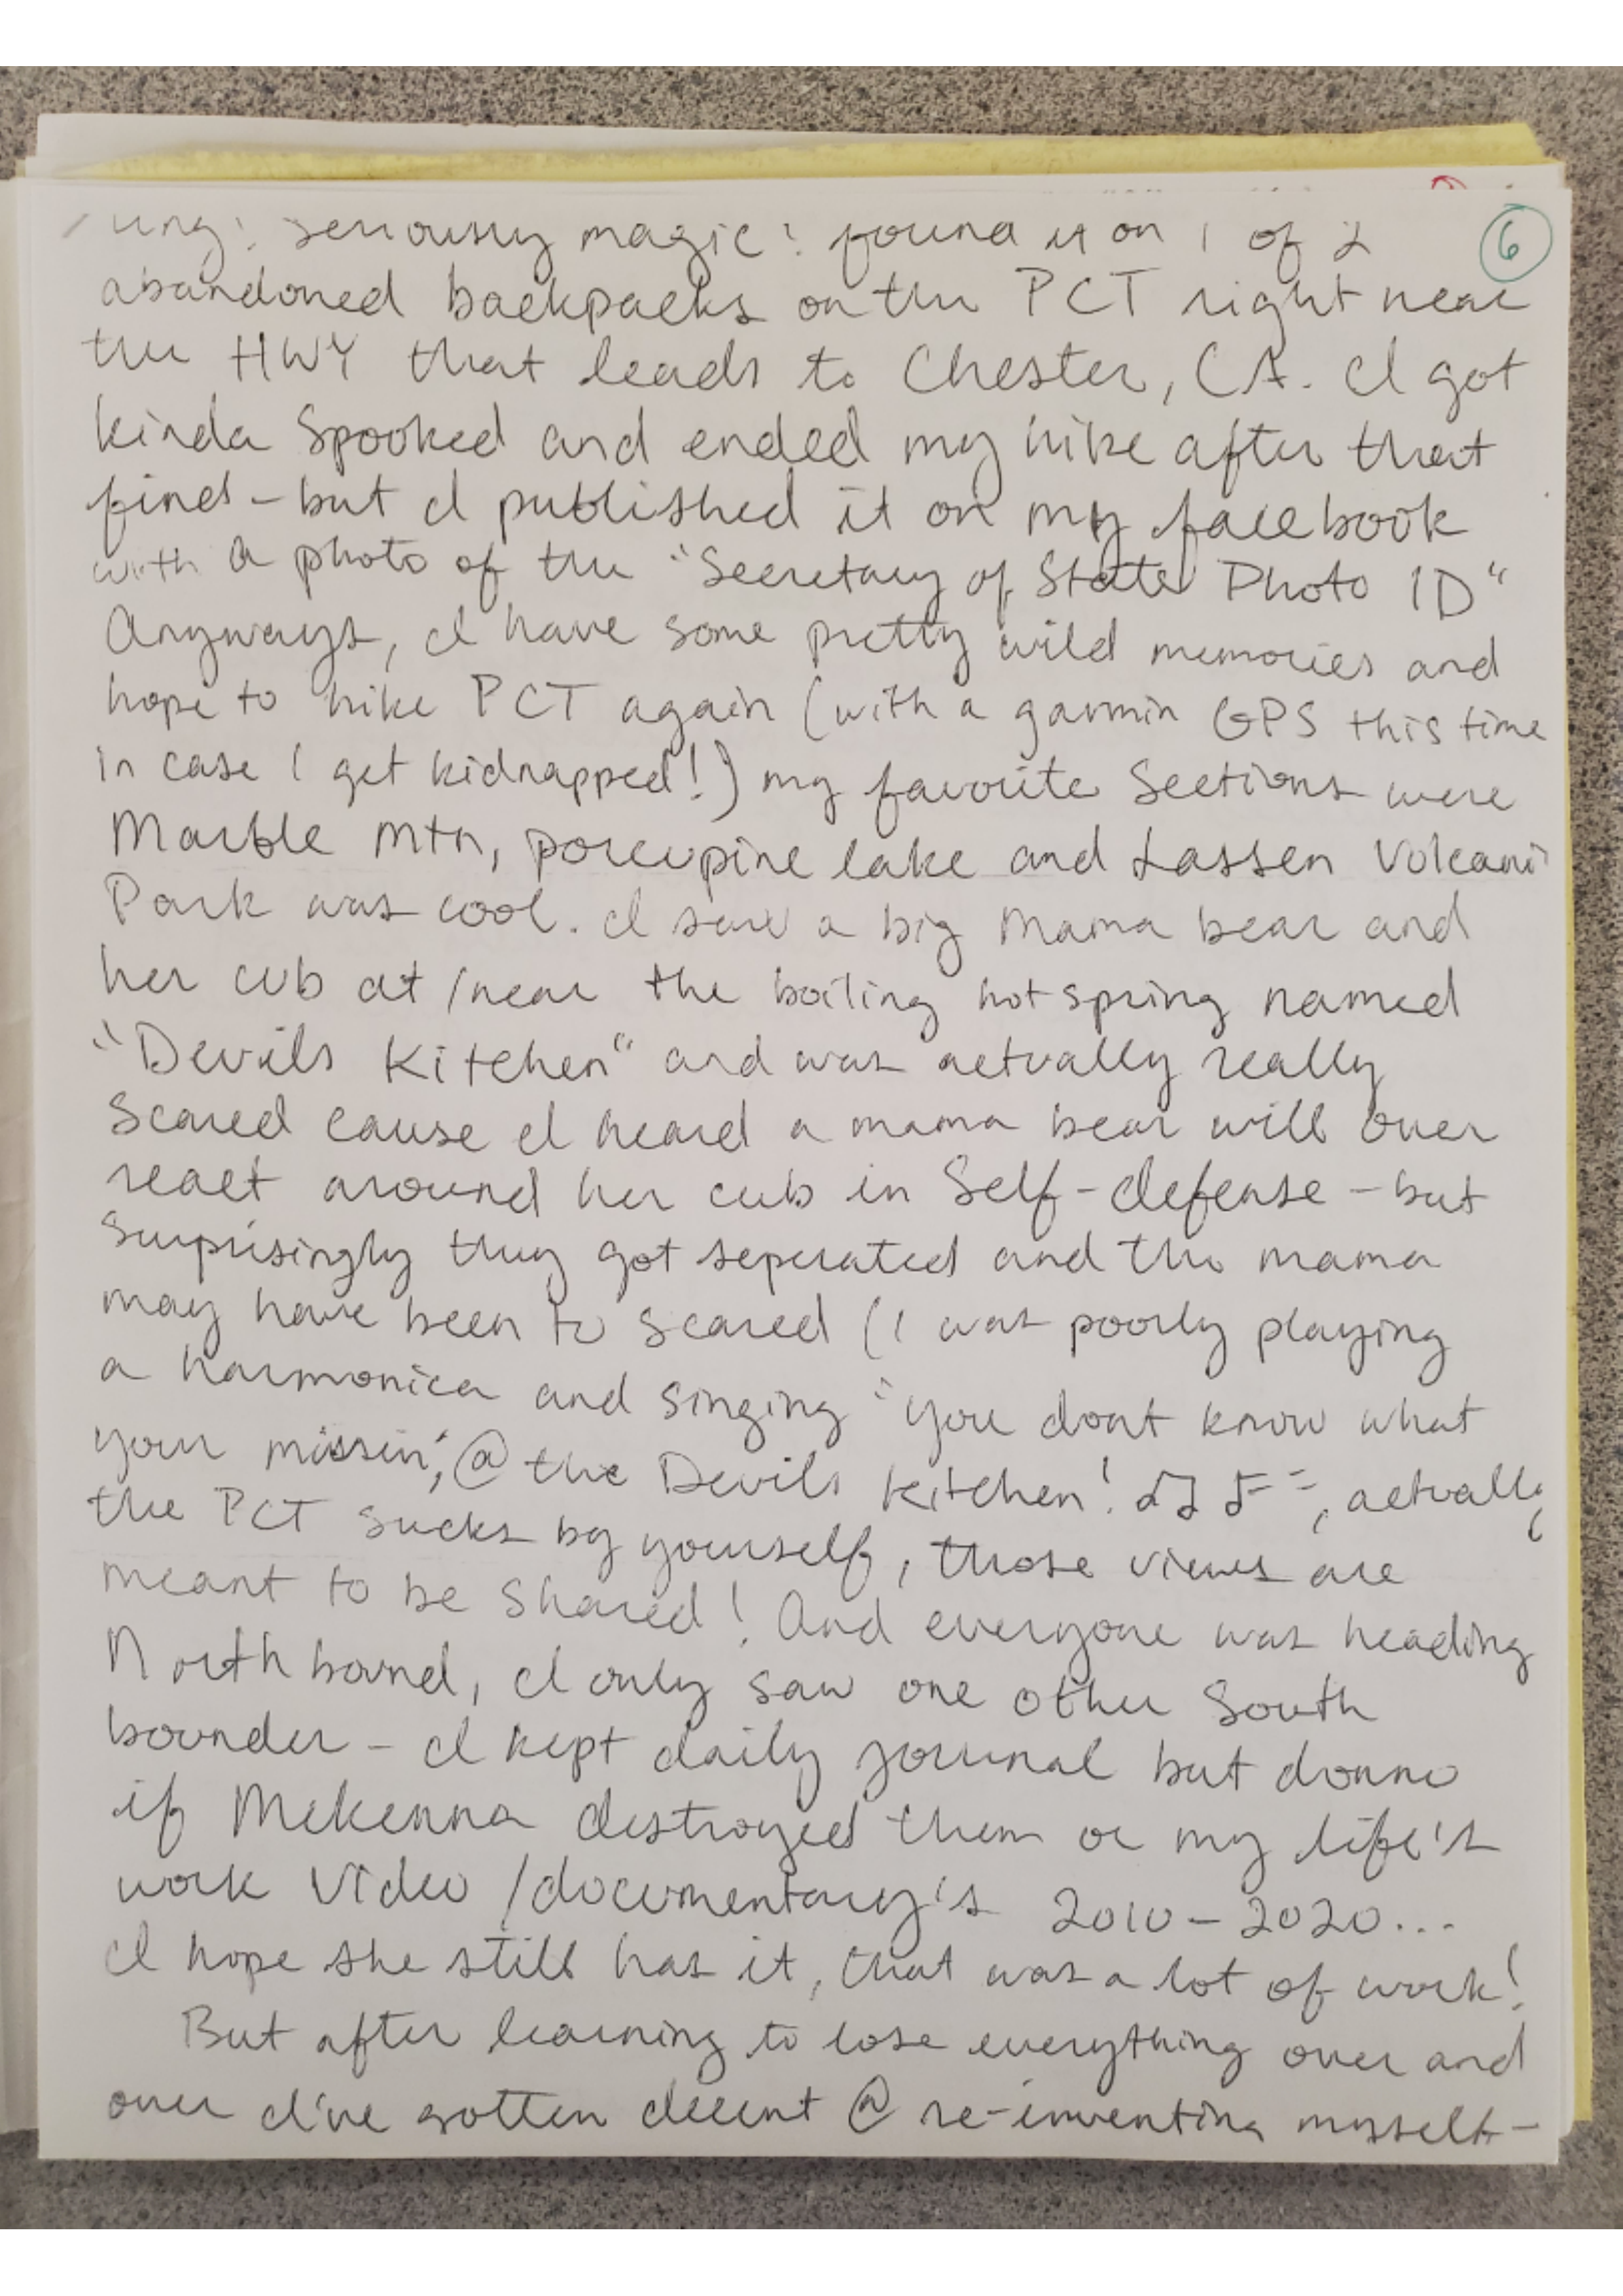 seriously magic! found it on 1 of 2
6
abandoned backpacks on the PCT right near
the HWY that leads to Chester, CA. I got
kinda spooked and ended my hike after that
find - but I published it on my facebook
with a photo of the "Secretary of State Photo ID"
Anyways, I have some pretty wild memories and
hope to hike PCT again (with a garmin GPS this time
in case I get kidnapped!) my favorite Sections were
Marble Mtn, porcupine lake and Lassen Volcani
Park was cool. I saw a big mama bear and
her cub at/near the boiling hot spring named
"Devils Kitchen" and was actually really
Scared cause I heard a mama bear will over
react around her cub in Self-defense - but
Surprisingly they got seperated and the mama
may have been to scared (I was poorly playing
a harmonica and singing "you dont know what
your missin', @ the Devils Kitchen! ♫ ♪, actually
the PCT sucks by yourself, those views are
meant to be shared! And everyone was heading
North bound, I only saw one other South
bounder - I kept daily journal but donno
if Mckenna destroyed them or my life's
work Video/documentary's 2010-2020...
I hope she still has it, that was a lot of work!
But after learning to lose everything over and
over I've gotten decent @ re-inventing myself-